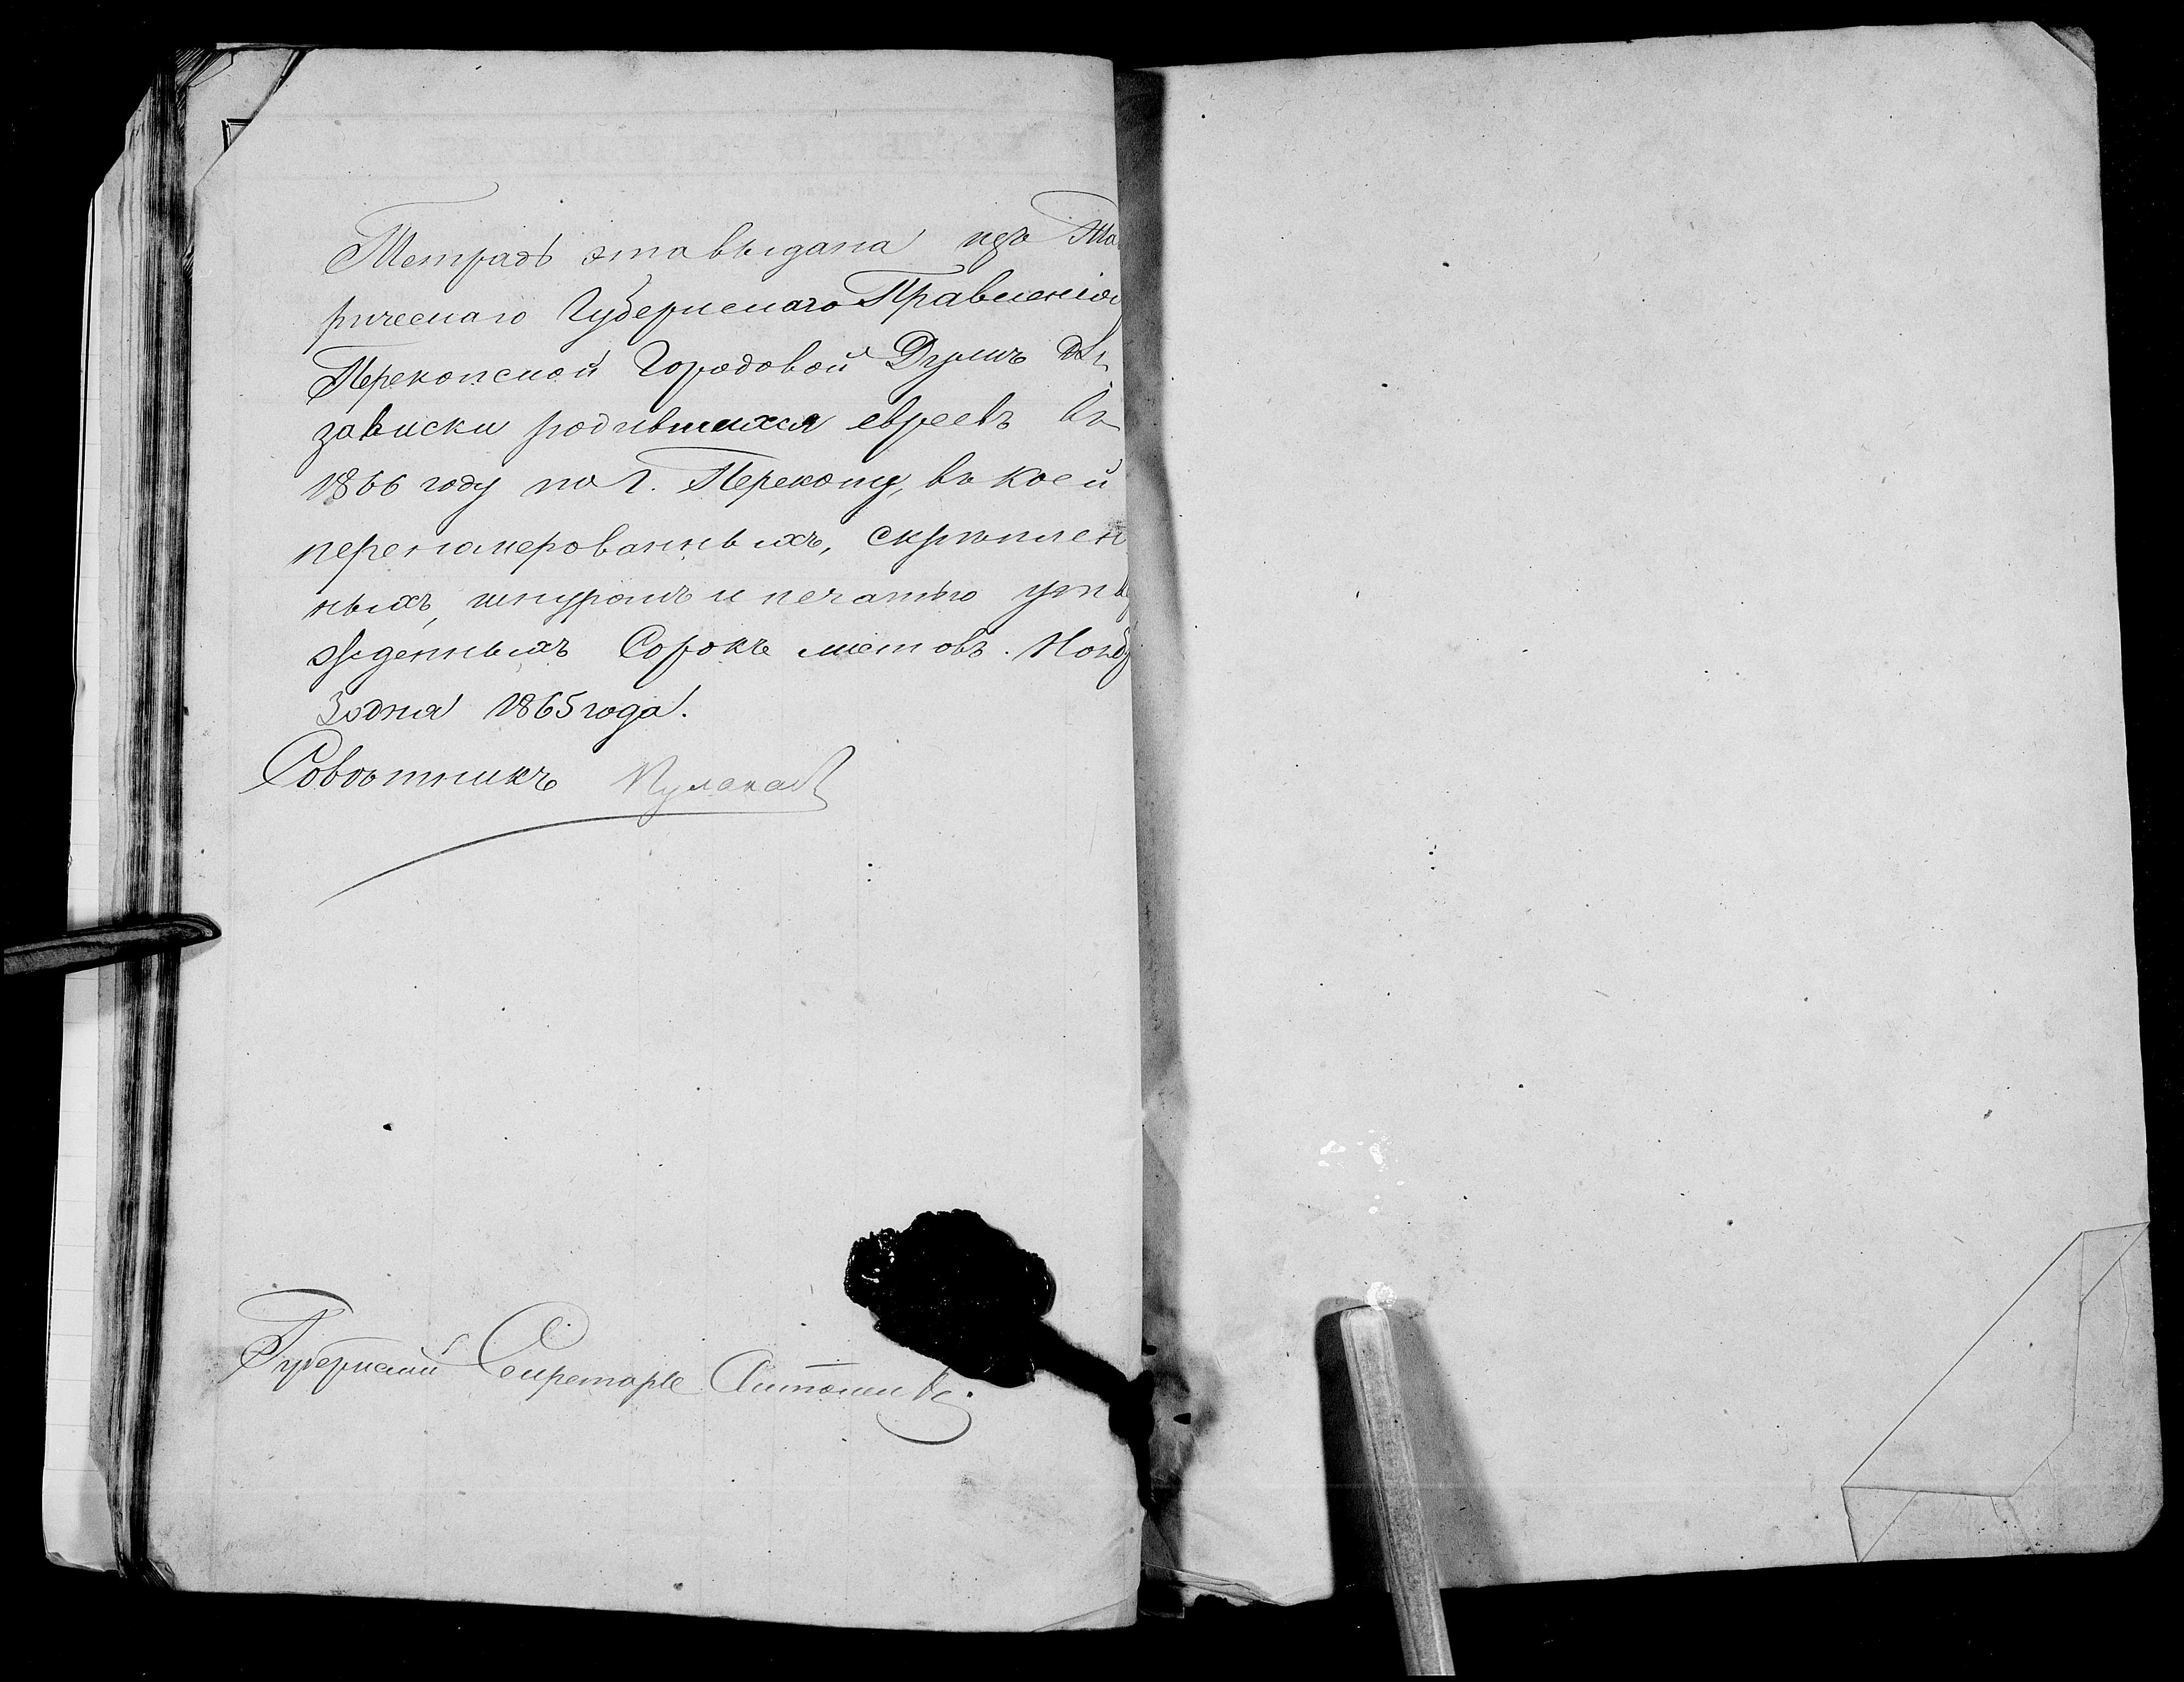 Тетрадь эта выдана изъ Тав
рическаго Губернскаго Правленія
Перекопской Городовой Думѣ для
записки родившихся евреевъ въ
1866 году по г. Перекопу, въ коей
перенумерованныхъ, скрѣплен
ныхъ, шнуромъ и печатью утвер
жденныхъ Сорокъ листовъ. Ноябр
30 дня 1865 года.
Совѣтникъ
Губернскій Секретарь